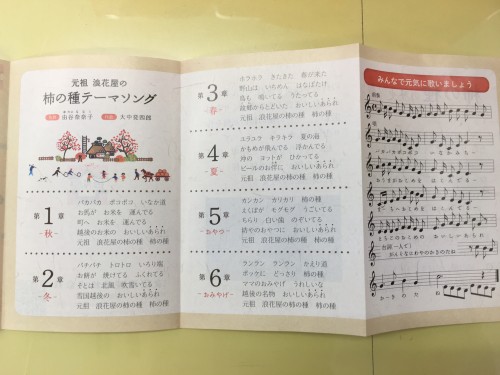 元祖 浪花屋の
柿の種テーマソング
大中愛四郎
第1章
-秋-
パカパカ ポコポコ いなか道
お馬が お米を 運んでる
町へ お米を 運んでる
越後のお米の おいしいあられ
元祖 浪花屋の柿の種 柿の種
第2章
-冬-
パチパチ トロトロ いろり端
お餅が 焼けてる ふくれてる
そとは 北風 吹雪いてる
雪国越後の おいしいあられ
元祖 浪花屋の柿の種 柿の種
第3章
-春-
ホラホラ きたきた 春が来た
野山は いちめん はなばたけ
鳥も 鳴いてる うたってる
故郷からとどいた おいしいあられ
元祖 浪花屋の柿の種 柿の種
第4章
-夏-
ユラユラ キラキラ 夏の海
かもめが飛んでる 浮かんでる
沖の ヨットが ひかってる
ビールのお伴に おいしいあられ
元祖 浪花屋の柿の種 柿の種
第5章
-おやつ-
カンカン カリカリ 柿の種
えくぼが モグモグ うごいてる
ちらり 白い歯 のぞいてる
皆やのおやつに おいしいあられ
元祖 浪花屋の柿の種 柿の種
第6章
-おみやげ-
ランラン ランラン かえり道
ポッケに どっさり 柿の種
ママのおみやげ うれしいな
越後の名物 おいしいあられ
元祖 浪花屋の柿の種 柿の種
みんなで元気に歌いましょう